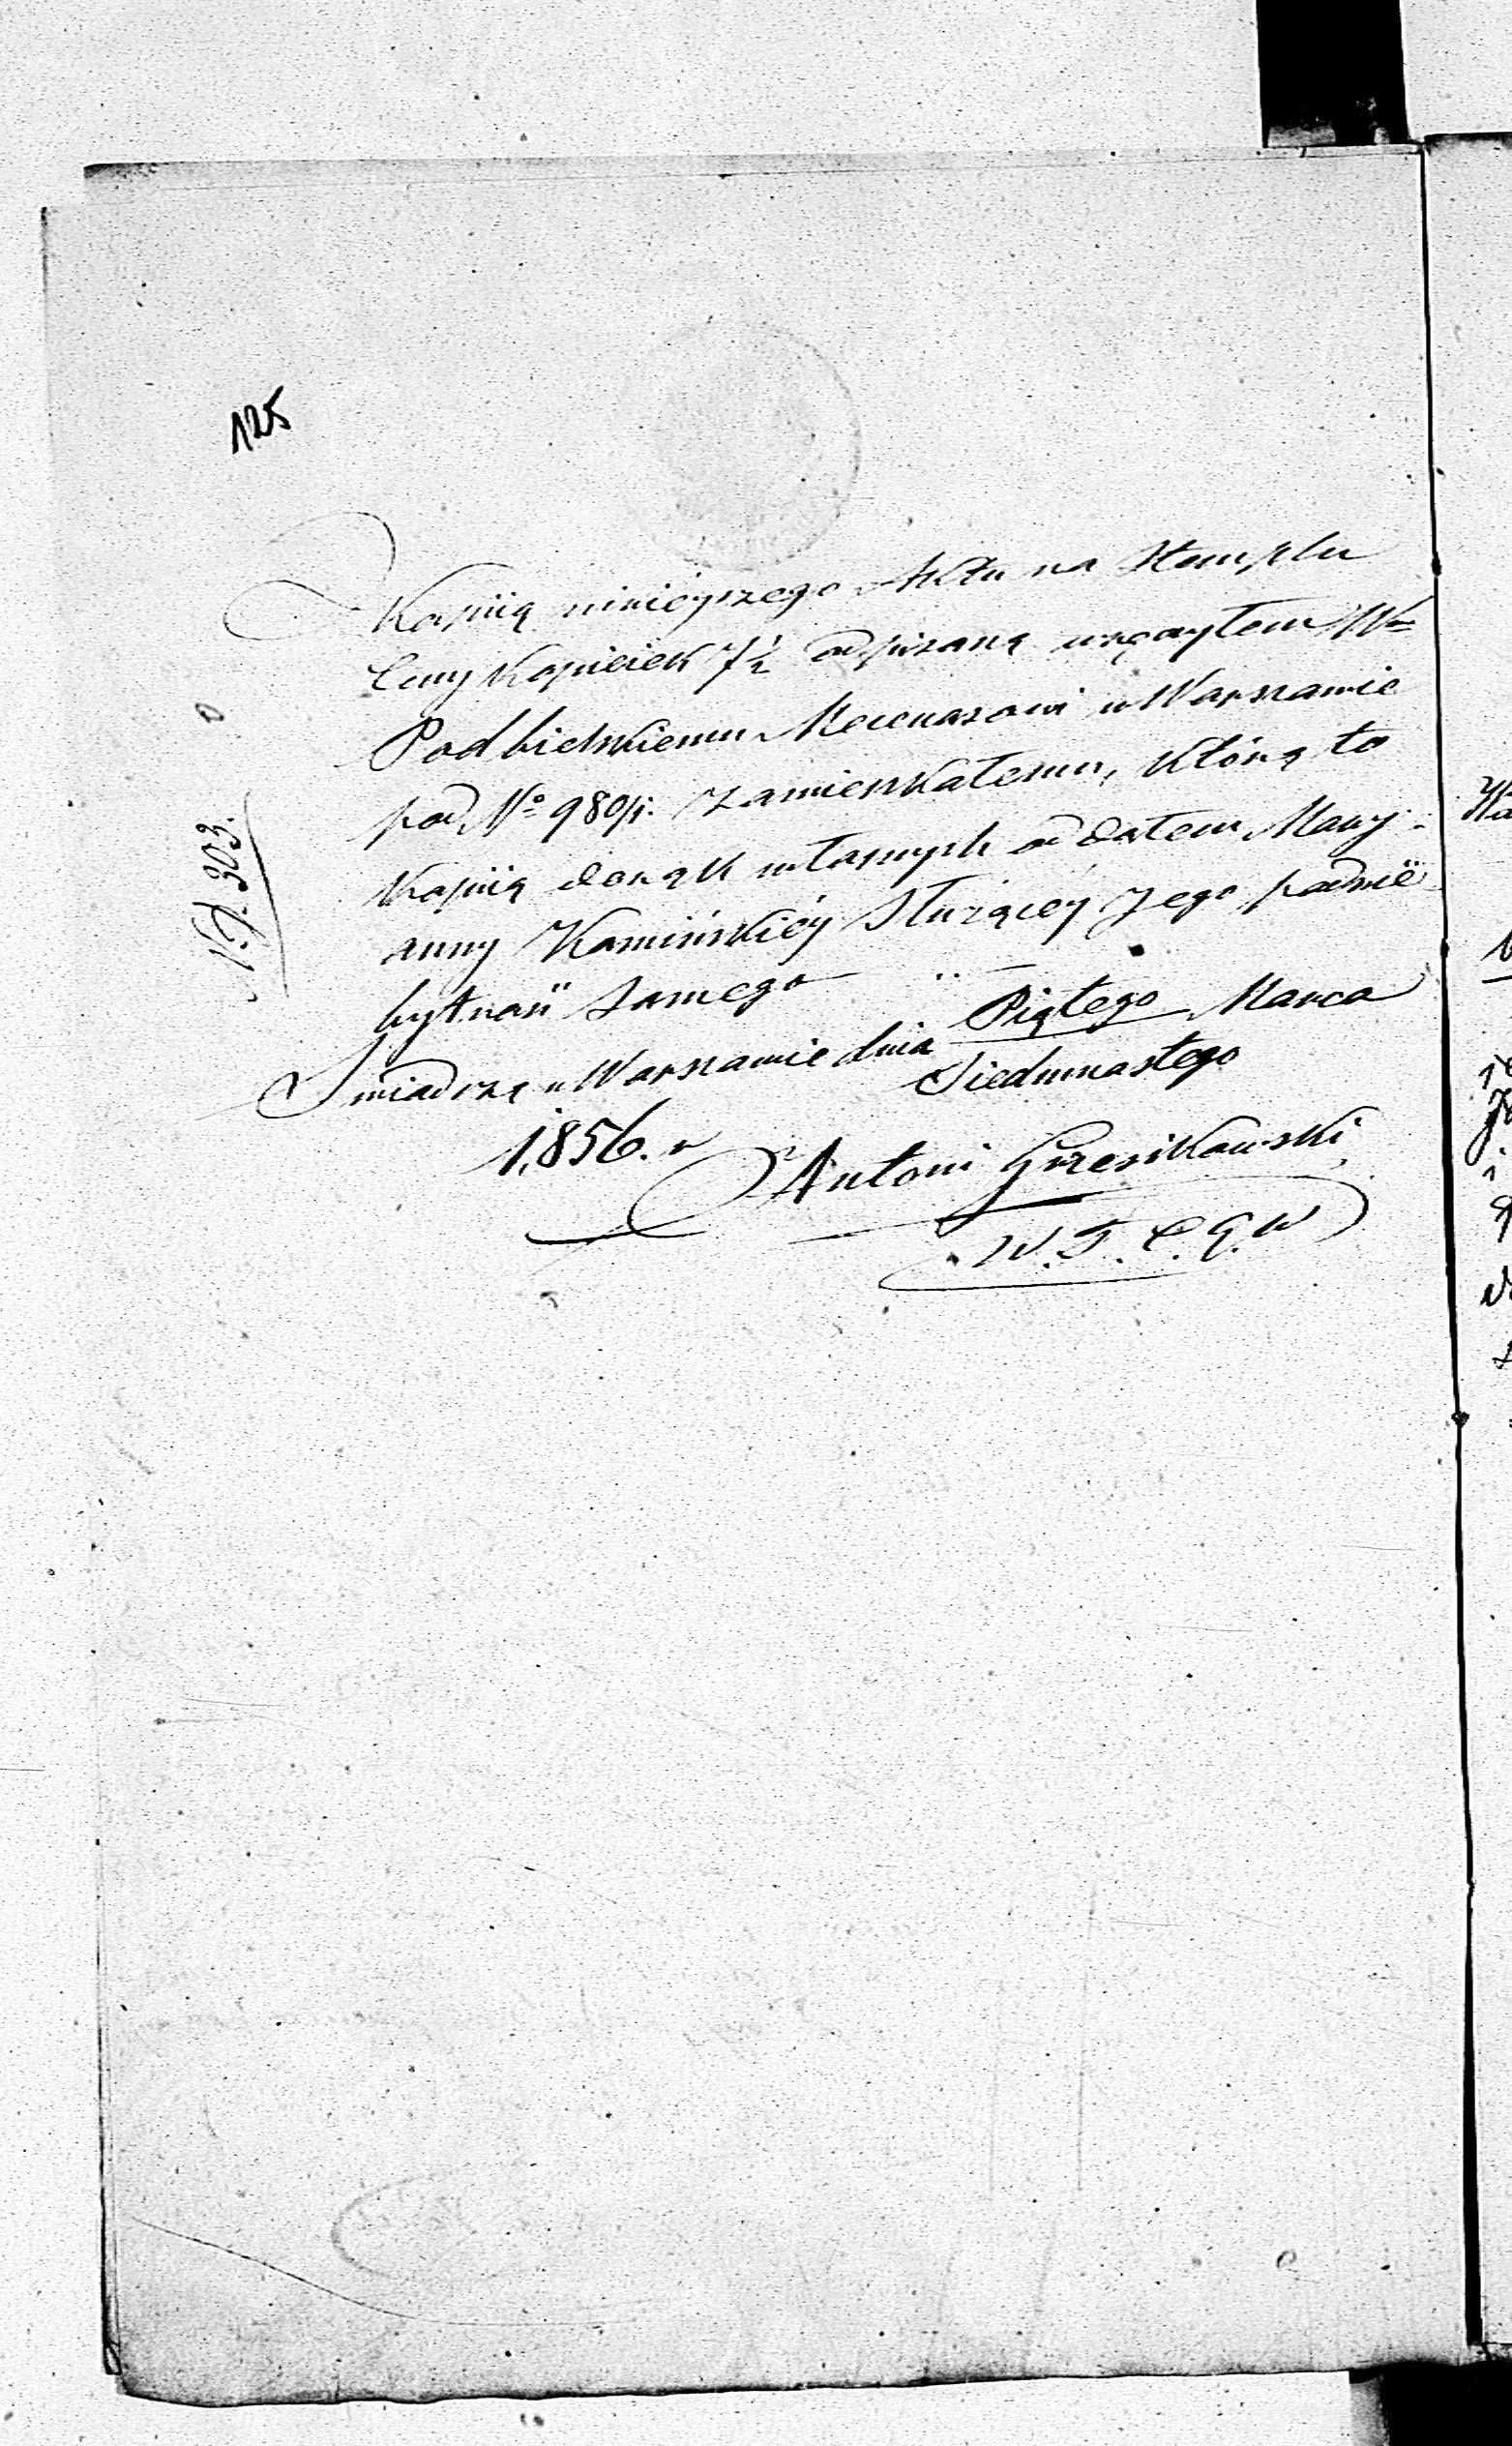 125
Kopiią ninieyszego Aktu na Stemplu
Ceny Kopieiek 7½ odpisaną wręczyłem W
Podbielskiemu Mecenasowi w Warszawie
pod No 980 p. zamieszkałemu, którą to
Kopiią do rąk własnych oddałem Mary-
anny Kamińskiéy Służącéy Jego, po d nie
bytność samego
Świadczę w Warszawie dnia Piątego Marca
Siedmnastego
1856. r
Antoni Grzesikowski
W. T. C. G. W
N. D. 303.